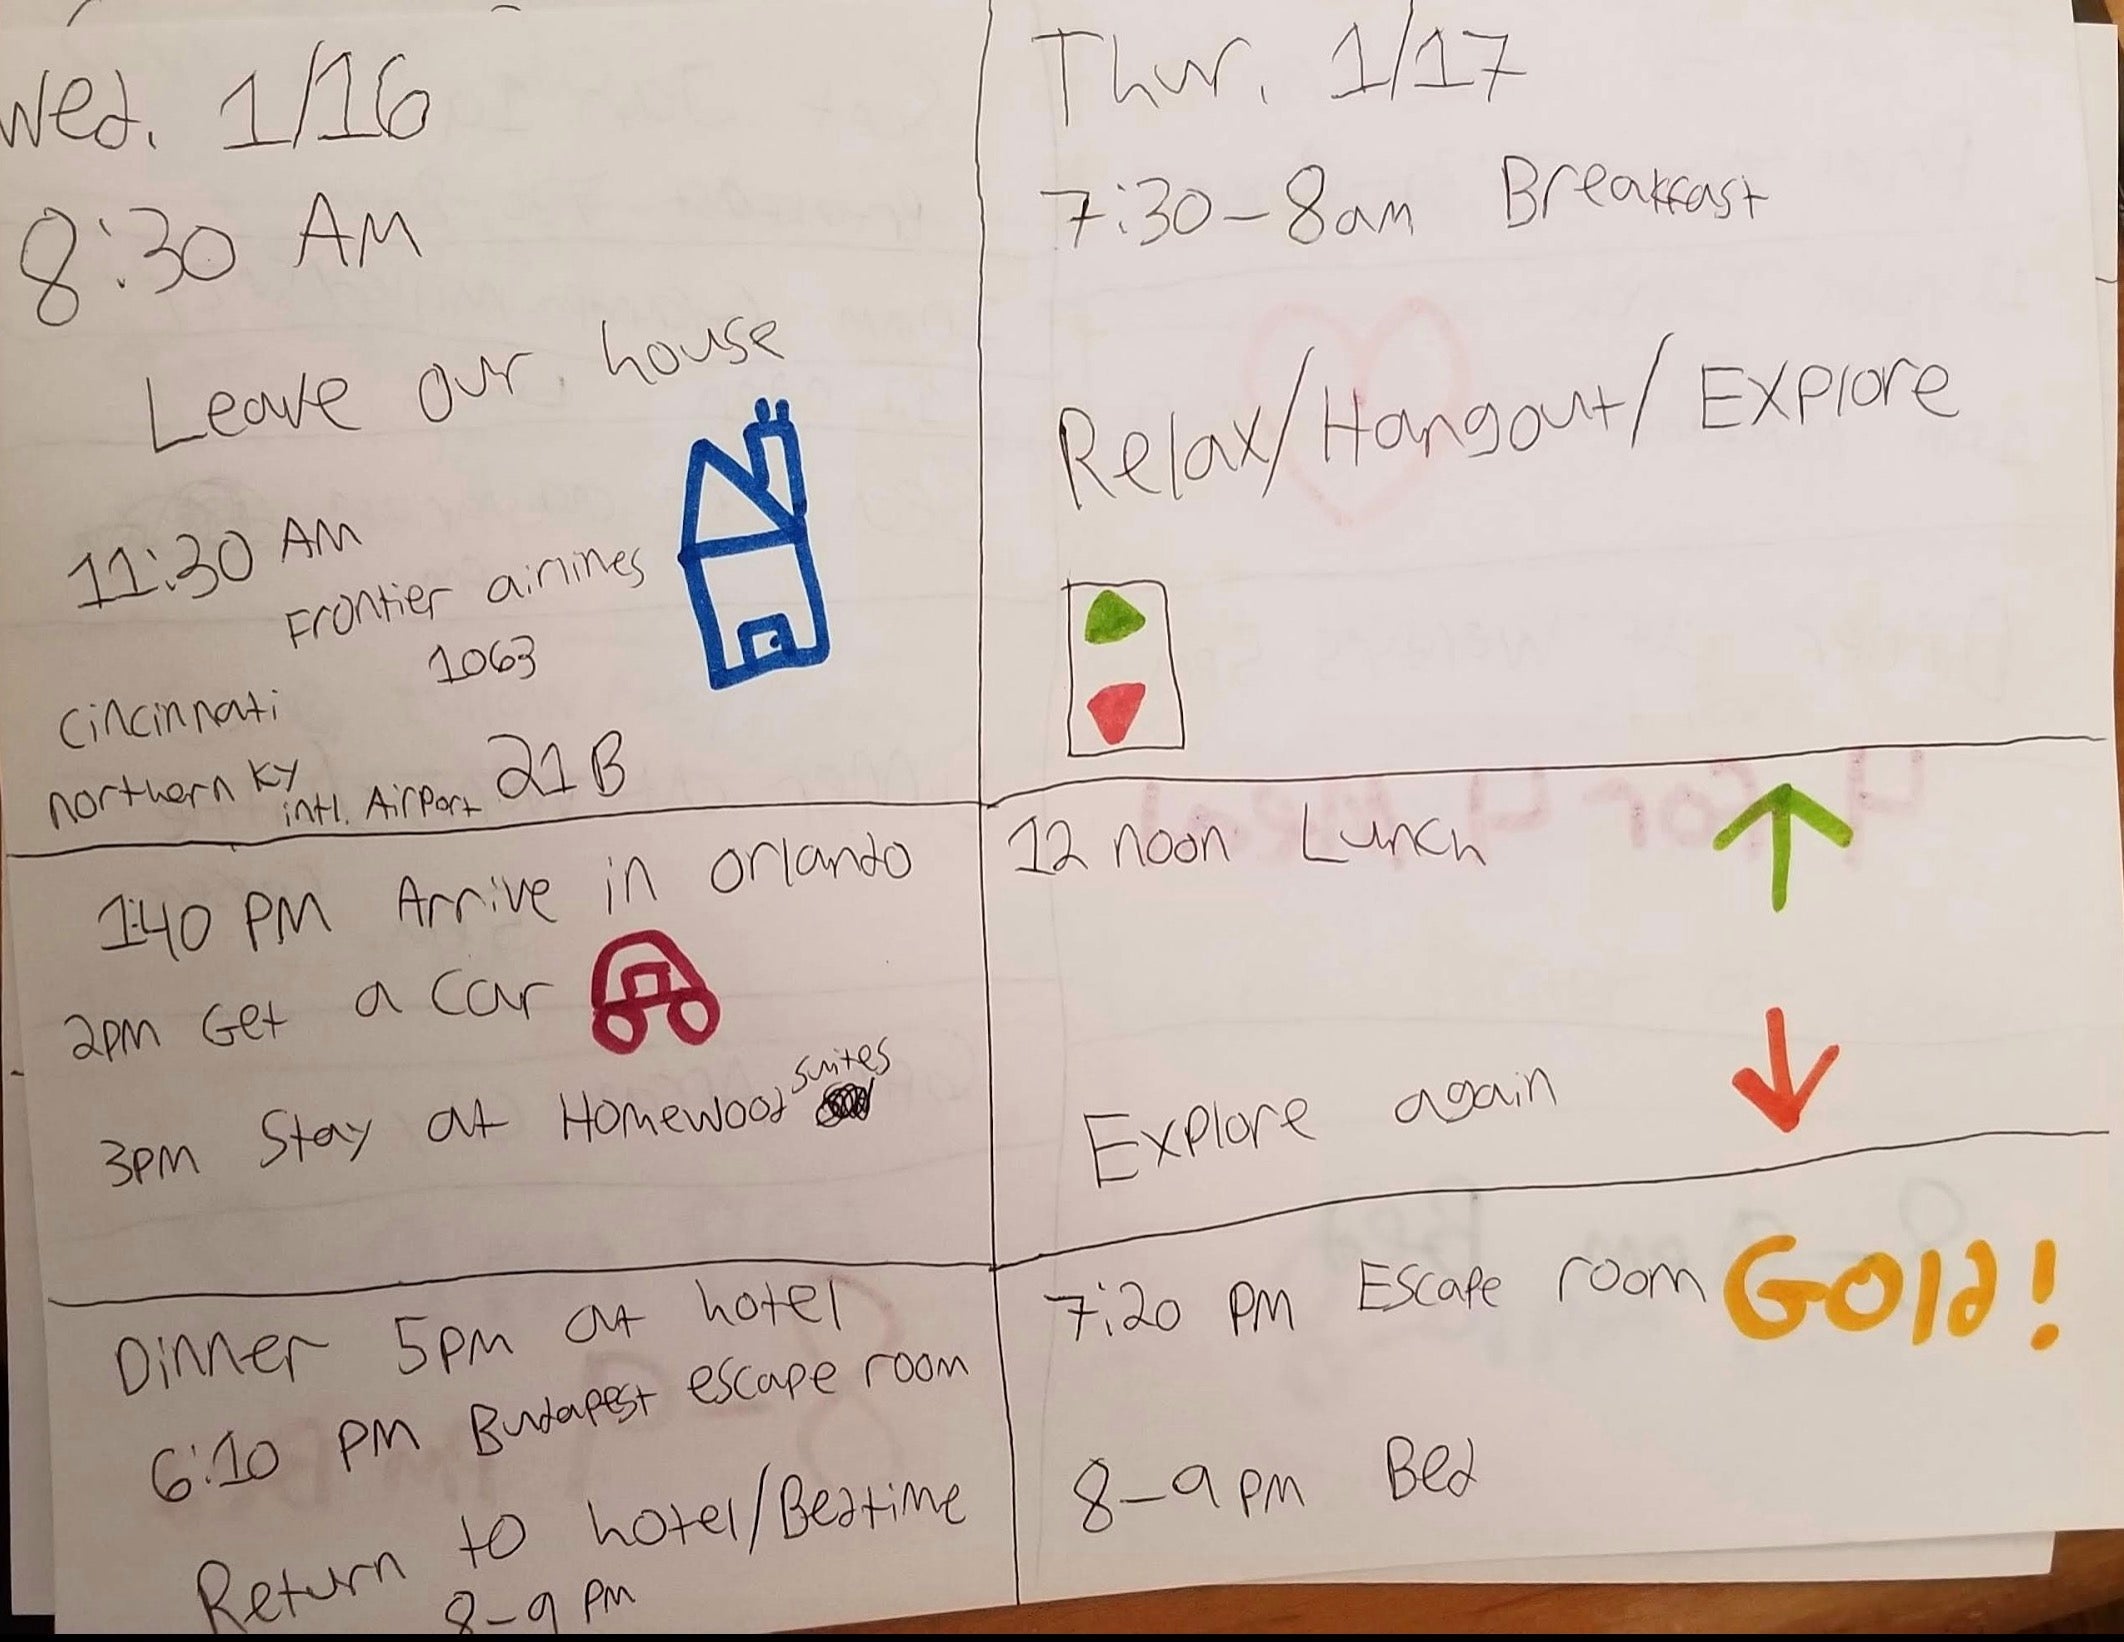 Wed. 1/16
8:30 AM
Leave our house
11:30 AM
Frontier airlines
1063
Cincinnati
northern Ky
intl. Airport 21B
1:40 PM Arrive in Orlando
2pm Get a car
3pm Stay at Homewood suites
Dinner 5pm at hotel
6:10 PM Budapest escape room
Return to hotel/Bedtime
8-9 PM
Thur. 1/17
7:30-8am Breakfast
Relax/Hangout/Explore
12 noon Lunch
Explore again
7:20 PM Escape room Gold!
8-9pm Bed